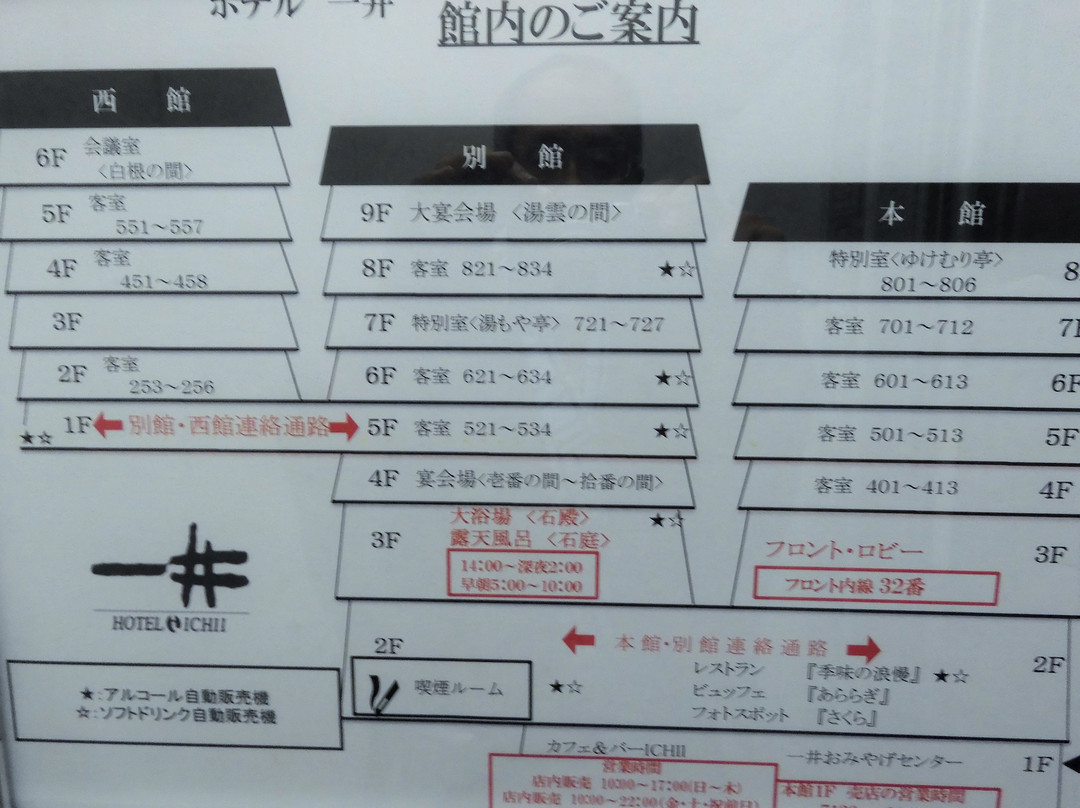 ホテル 一井
館内のご案内
西 館
6F 会議室
〈白根の間〉
5F 客室
551～557
4F 客室
451～458
3F
2F 客室
253～256
★☆ 1F 別館・西館連絡通路
別 館
9F 大宴会場 〈湯雲の間〉
8F 客室 821～834 ★☆
7F 特別室〈湯もや亭〉 721～727
6F 客室 621～634 ★☆
5F 客室 521～534 ★☆
4F 宴会場〈壱番の間～拾番の間〉
3F 大浴場 〈石殿〉 ★☆
露天風呂 〈石庭〉
14:00～深夜2:00
早朝5:00～10:00
本 館
特別室〈ゆけむり亭〉 8
801～806
客室 701～712 7F
客室 601～613 6F
客室 501～513 5F
客室 401～413 4F
フロント・ロビー 3F
フロント内線 32番
2F 本館・別館連絡通路 2F
喫煙ルーム ★☆
レストラン 『季味の浪慢』 ★☆
ビュッフェ 『あららぎ』
フォトスポット 『さくら』
一井
HOTEL ICHII
★:アルコール自動販売機
☆:ソフトドリンク自動販売機
カフェ&バーICHII
営業時間
店内販売 10:00～17:00(日～木)
店内販売 10:00～22:00(金・土・祝前日)
一井おみやげセンター 1F
本館1F 売店の営業時間